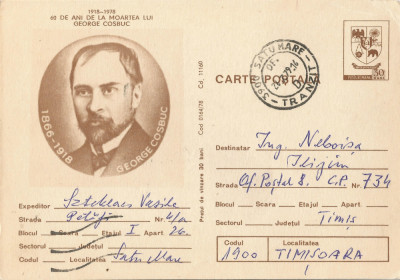 1918-1978
60 DE ANI DE LA MOARTEA LUI
GEORGE COSBUC
1866-1918
GEORGE COSBUC
Cd. 11160
Cod 0164/78
Pretul de vinzare 30 bani
CARTE POSTALA
3900 SATU MARE
TRANZIT
Expeditor Vasile
Strada Petőfi Nr. 4/a
Blocul Scara Etajul I Apart. 26
Sectorul Județul
Codul Localitatea Satu Mare
Destinatar Ing. Neboisa
Strada Of. Poștal 8. C.P. Nr. 734
Blocul Scara Etajul Apart.
Sectorul Județul Timiș
Codul Localitatea
1900 TIMISOARA